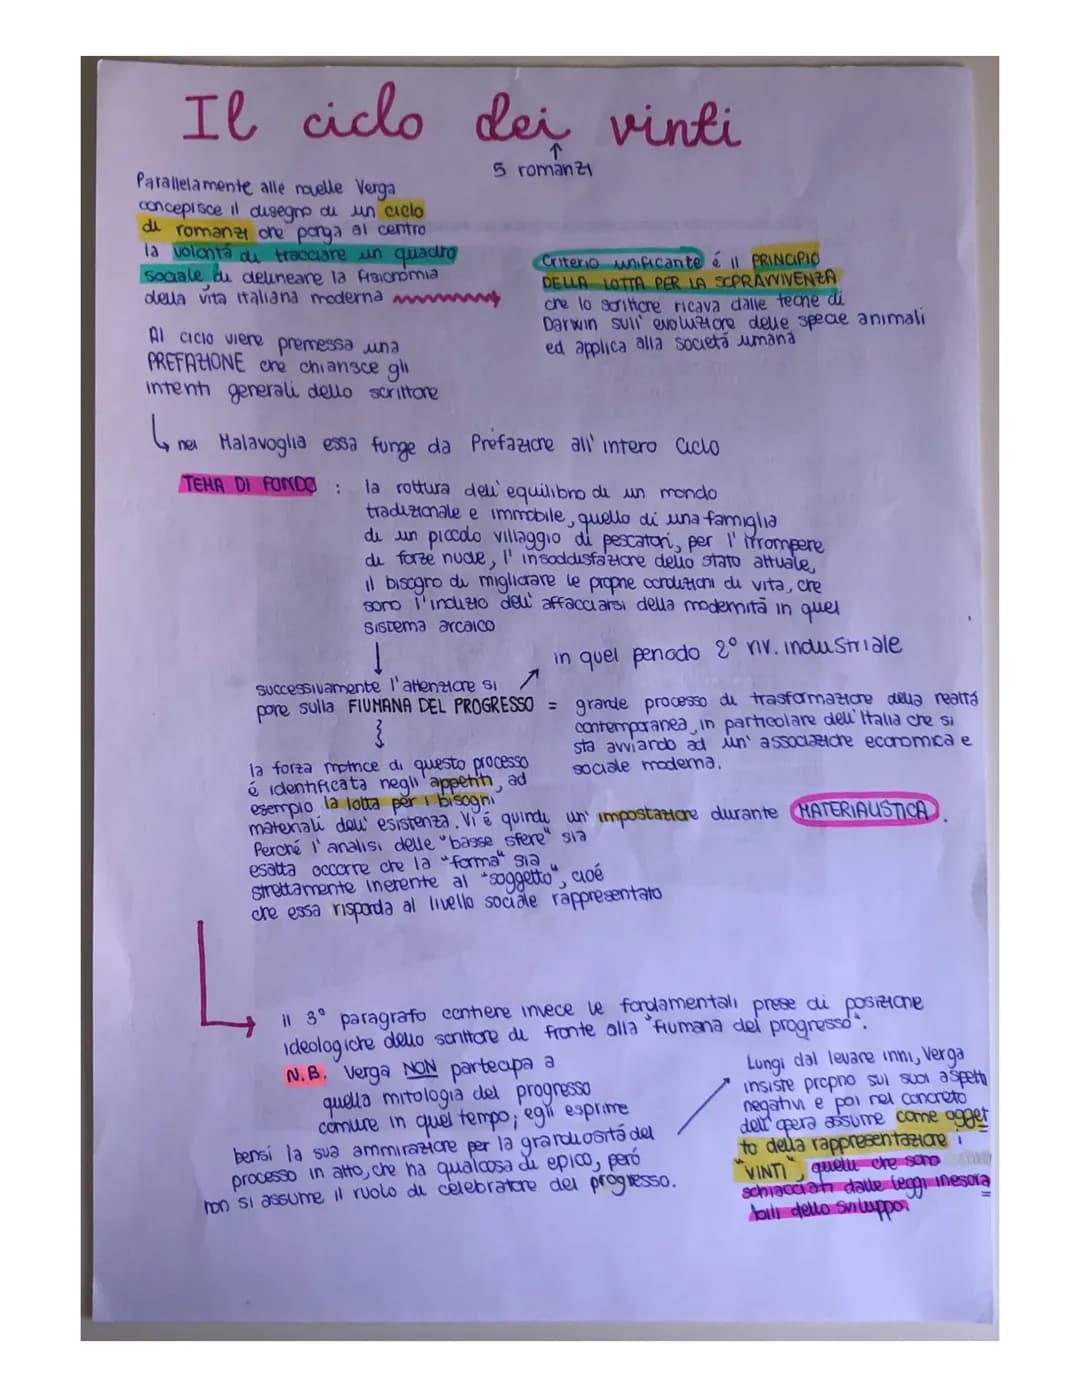 Il ciclo dei vinti
↑
5 romanzi
Parallelamente alle novelle Verga
concepisce il disegno di un ciclo
di romanzi che ponga al centro
la volontà di tracciare un quadro
sociale, di delineare la fisionomia
della vita italiana moderna
Criterio unificante é il PRINCIPIO
DELLA LOTTA PER LA SOPRAVVIVENZA
che lo scrittore ricava dalle teorie di
Darwin sull' evoluzione delle specie animali
ed applica alla società umana
Al ciclo viene premessa una
PREFAZIONE che chiarisce gli
intenti generali dello scrittore
nei Malavoglia essa funge da Prefazione all' intero Ciclo
TEMA DI FONDO : la rottura dell' equilibrio di un mondo
tradizionale e immobile, quello di una famiglia
di un piccolo villaggio di pescatori, per l' irrompere
di forze nuove, l' insoddisfazione dello stato attuale,
il bisogno di migliorare le proprie condizioni di vita, che
sono l'indizio dell' affacciarsi della modernità in quel
sistema arcaico
in quel periodo 2° riv. industriale
successivamente l'attenzione si
pone sulla FIUMANA DEL PROGRESSO = grande processo di trasformazione della realtà
contemporanea, in particolare dell' Italia che si
sta avviando ad un' associazione economica e
sociale moderna.
la forza motrice di questo processo
é identificata negli appetiti, ad
esempio la lotta per i bisogni
materiali dell' esistenza. Vi é quindi un' impostazione durante MATERIALISTICA.
Perché l' analisi delle "basse sfere" sia
esatta occorre che la "forma" sia
strettamente inerente al "soggetto", cioé
che essa risponda al livello sociale rappresentato
il 3° paragrafo contiene invece le fondamentali prese di posizione
ideologiche dello scrittore di fronte alla "fiumana del progresso".
N.B. Verga NON partecipa a
quella mitologia del progresso
comune in quel tempo; egli esprime
bensì la sua ammirazione per la grandiosità del
processo in atto, che ha qualcosa di epico, però
non si assume il ruolo di celebratore del progresso.
Lungi dal levare inni, Verga
insiste proprio sui suoi aspetti
negativi e poi nel concreto
dell' opera assume come ogget
to della rappresentazione i
"VINTI", quelli che sono
schiacciati dalle leggi inesora
bili dello sviluppo.